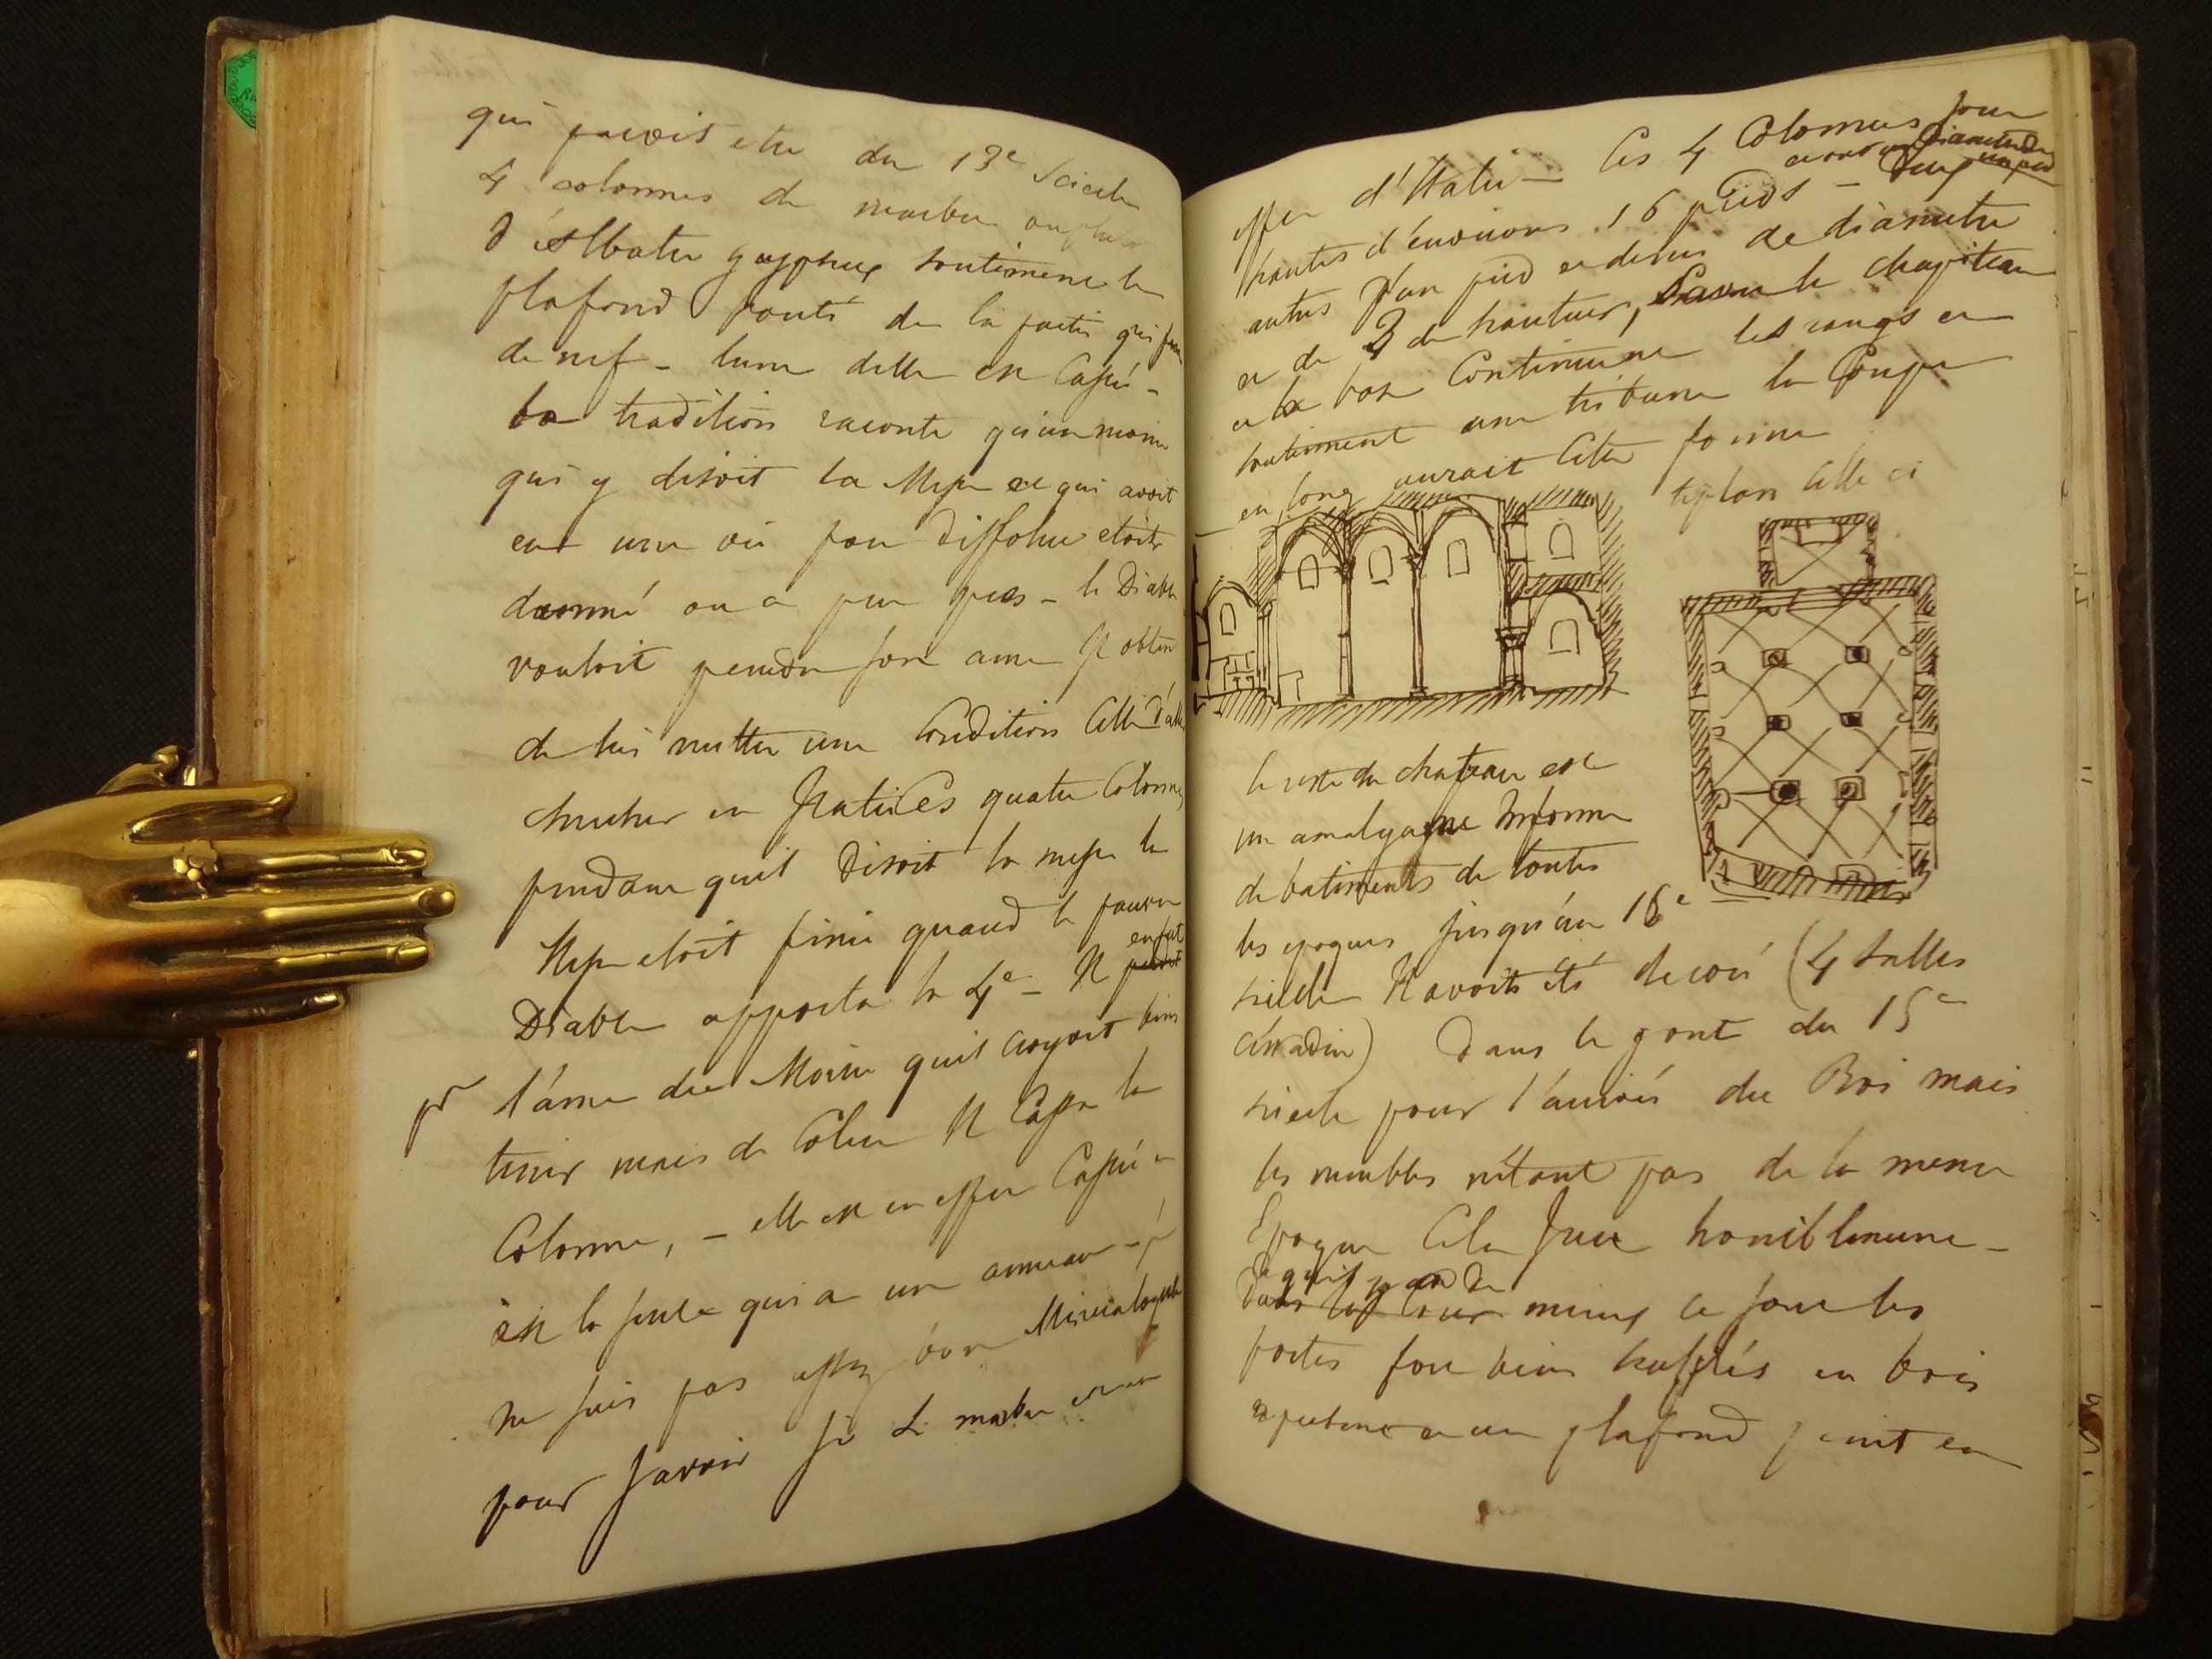 qui paroit etre du 13e Siecle
4 colonnes de marbre ou plutot
d'Albatre gypseux soutiennent le
plafond vouté de la partie qui fait
de nef - l'une delle est Cassé -
La tradition raconte qu'un moine
qui y disoit la Messe et qui avoit
eut une vie fort dissolue etoit
damné ou a peu pres - le Diable
vouloit prendre son ame Il obtint
de lui mettre une Condition Celle d'aller
chercher en Italie Ces quatre Colonnes
pendant quil Disoit la messe la
Messe etoit finie quand le pauvre
Diable apporta la 4e - Il en fut
pr l'ame du Moine quil croyoit bien
tenir mais de Colere Il Cassa la
Colonne, - elle est en effet Cassée et
est la seule qui a un anneau - je
ne suis pas assez bon Mineralogiste
pour Savoir Si le marbre est en
effet d'Italie - Ces 4 Colonnes sont
hautes d'environs 16 pieds - Deux
autres d'un pied et demi de diametre
et de 3 de hauteur, Sans le chapiteau
et la base Continuent les rangs et
soutiennent une tribune la Coupe
en long aurait Cette forme
le plan Celle ci
le reste du chateau est
un amalgame Informe
de batiments de toutes
les epoques jusqu'au 16e
siecle Il avoit été decoré (4 salles
) Dans le gout du 15e
siecle pour l'arrivée du Roi mais
les meubles n'étant pas de la meme
Epoque Cela Jure horriblement -
ce quil y a de mieux ce sont les
portes fort bien sculptés en bois
et un plafond peint en